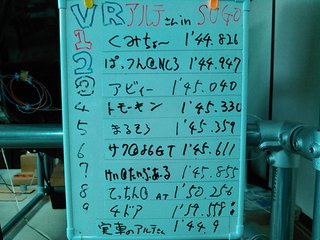 VRアルテさん in SUGO
1 くみちょ〜 1'44.826
2 ぱっつん@NC3 1'44.947
3 アビィー 1'45.040
4 トモーキン 1'45.330
5 まるそう 1'45.359
6 サク@86GT 1'45.611
7 1'45.855
8 てっちん@ AT 1'50.256
9 4ドア
実車のアルテさん 1'44.9